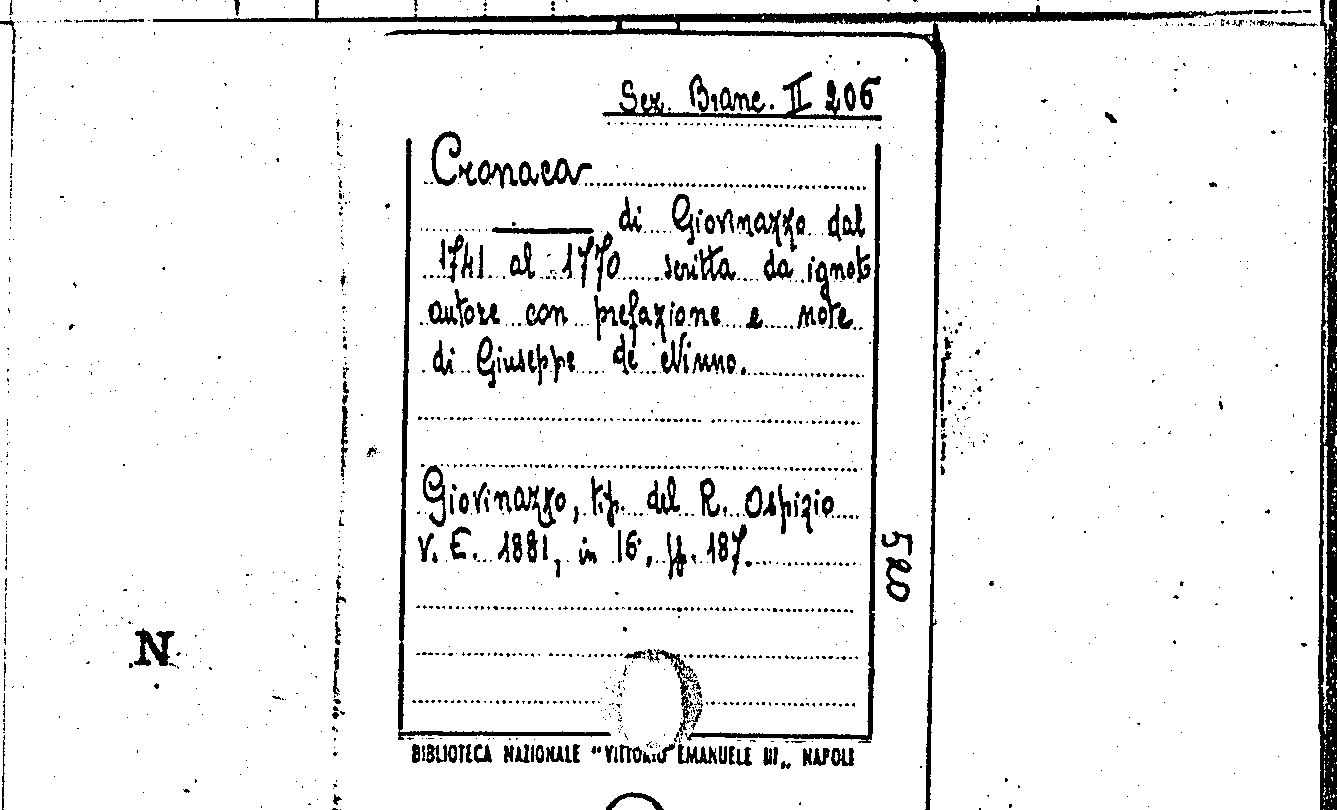 Sez. Branc. II 206
Cronaca
di Giovinazzo dal
1741 al 1770 scritta da ignoto
autore con prefazione e note
di Giuseppe de Ninno.
Giovinazzo, tip. del R. Ospizio
V. E. 1881, in 16°, pp. 187.
520
N
BIBLIOTECA NAZIONALE "VITTORIO EMANUELE III„ NAPOLI